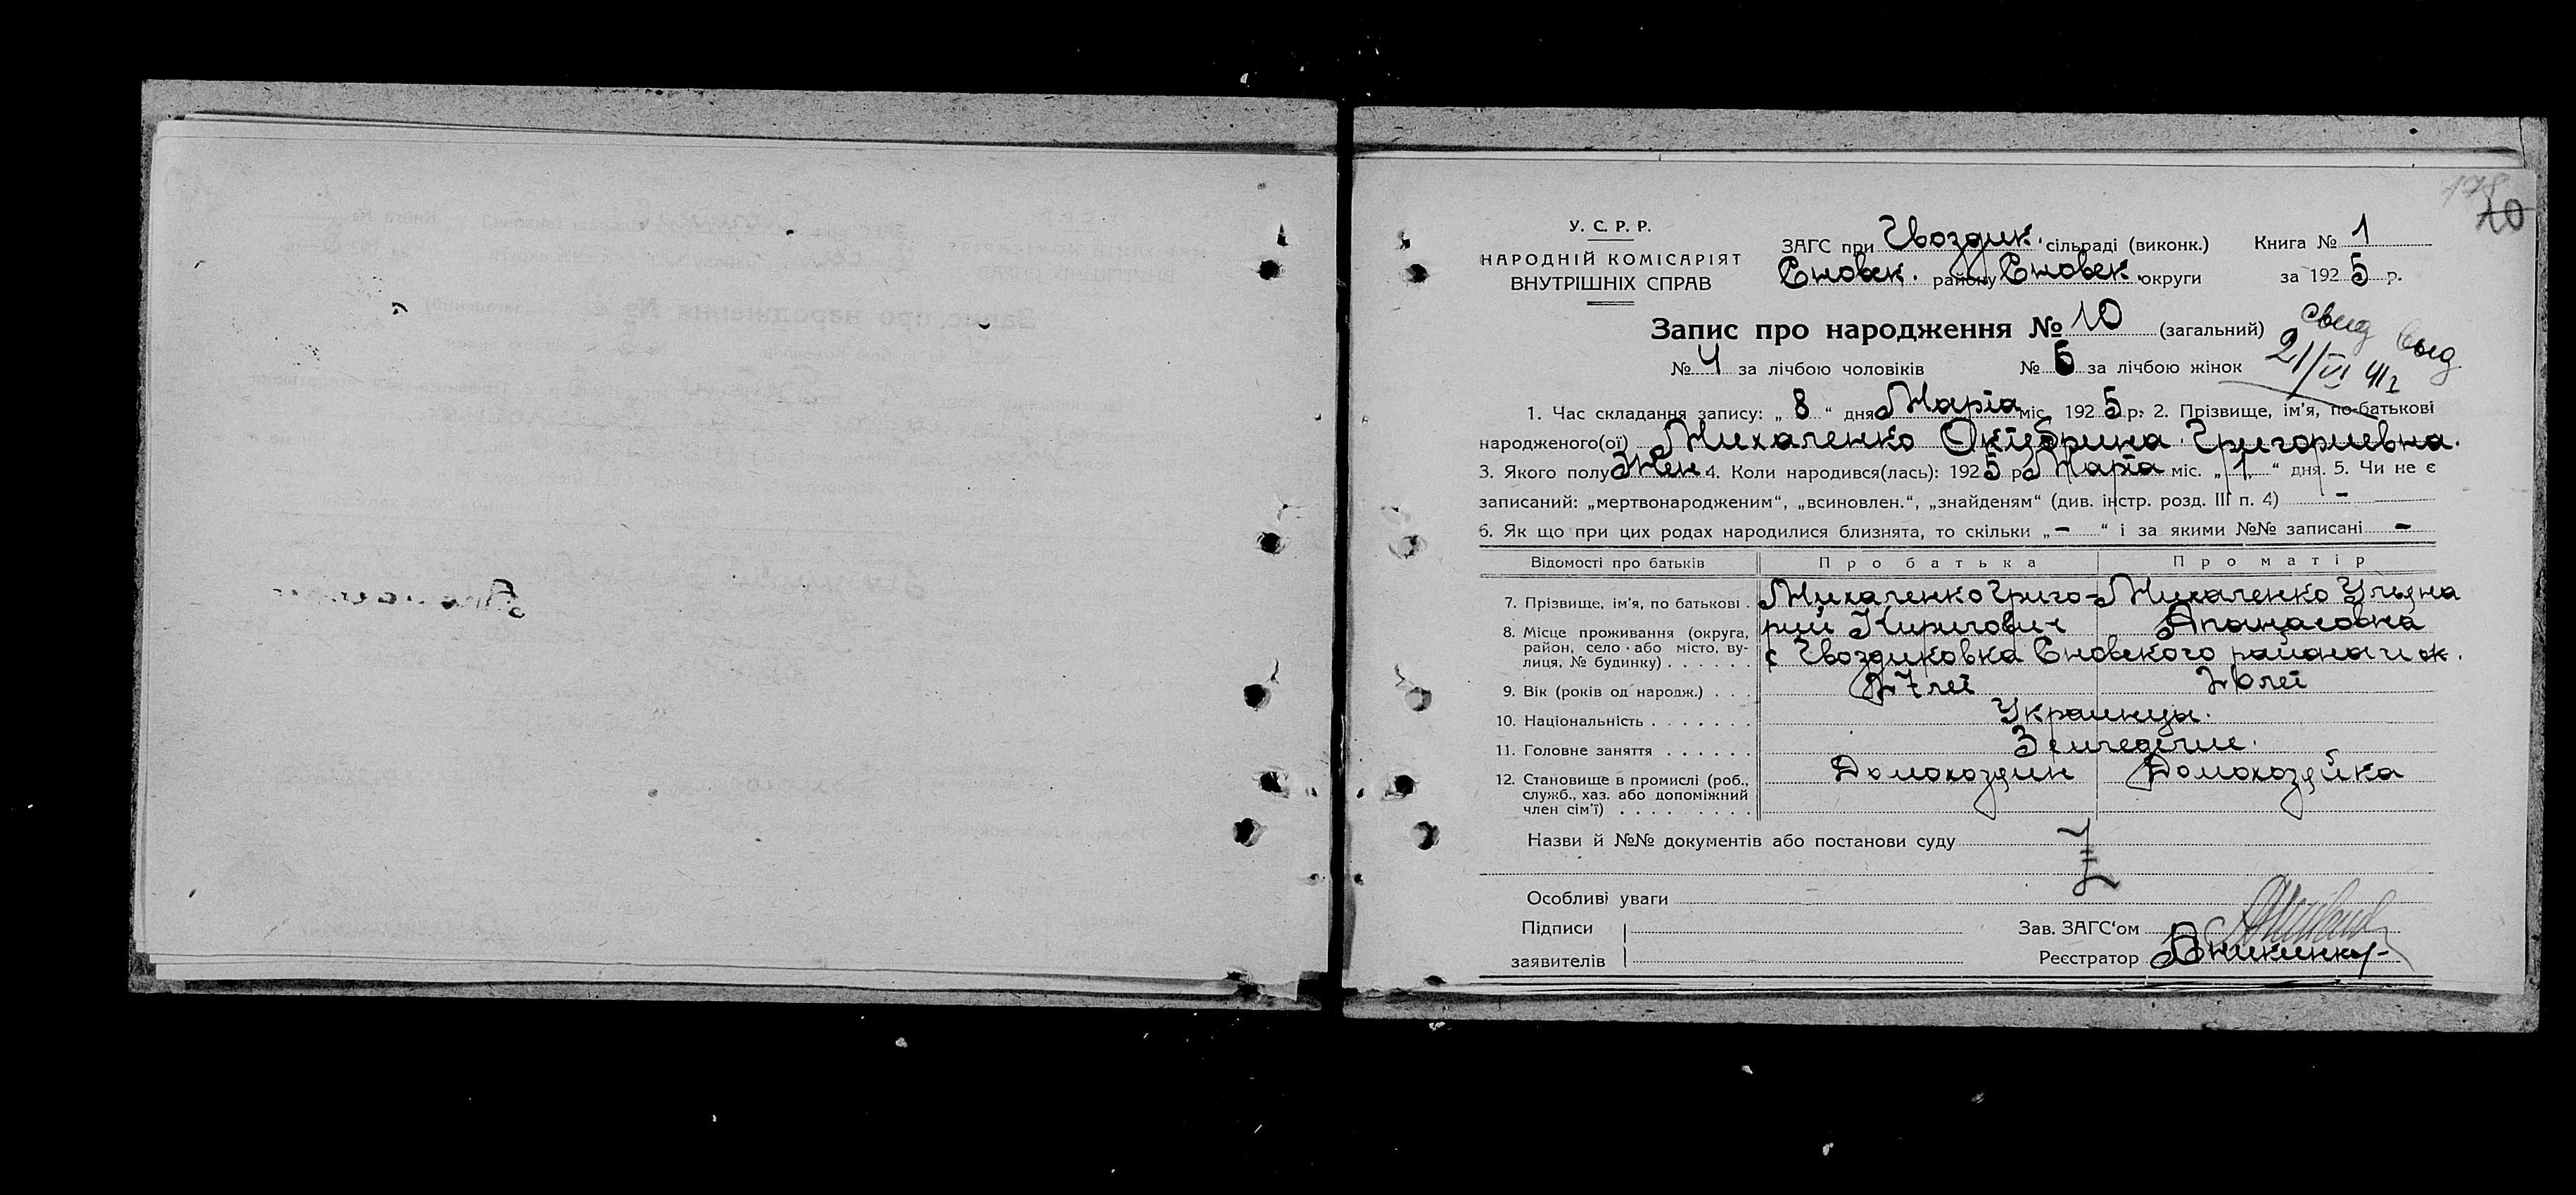 178
10
У. С. Р. Р.
НАРОДНІЙ КОМІСАРІЯТ
ВНУТРІШНІХ СПРАВ
ЗАГС при Гвоздик. сільраді (виконк.) Книга № 1
Сновск. району Сновск округи за 1925 р.
Запис про народження № 10 (загальний)
№ 4 за лічбою чоловіків № 6 за лічбою жінок
свид выд
21/VI 41г
1. Час складання запису: „ 8 “ дня Марта міс. 1925 р. 2. Прізвище, ім’я, по-батькові
народженого(ої) Михаленко Октебрина Григориевна.
3. Якого полу Жен 4. Коли народився(лась): 1925 р. Марта міс. „ 1 “ дня. 5. Чи не є
записаний: „мертвонародженим“, „всиновлен.“, „знайденям“ (див. інстр. розд. III п. 4) -
6. Як що при цих родах народилися близнята, то скільки „ - “ і за якими №№ записані -
Відомості про батьків Про батька Про матір
7. Прізвище, ім’я, по батькові . Михаленко Григо- Михаленко
рий Кирилович
8. Місце проживання (округа,
район, село або місто, ву-
лиця, № будинку) . . . . . . с Гвоздиковка Сновского района и ок.
9. Вік (років од народж.) . . . 27 лет 20 лет
10. Національність . . . . . . . Украинцы.
11. Головне заняття . . . . . . Земледелие.
12. Становище в промислі (роб.,
служб., хаз. або допоміжний
член сім’ї) . . . . . . . . . Домохозяин Домохозяйка
Назви й №№ документів або постанови суду
Особливі уваги
Підписи
заявителів
Зав. ЗАГС‘ом
Реєстратор